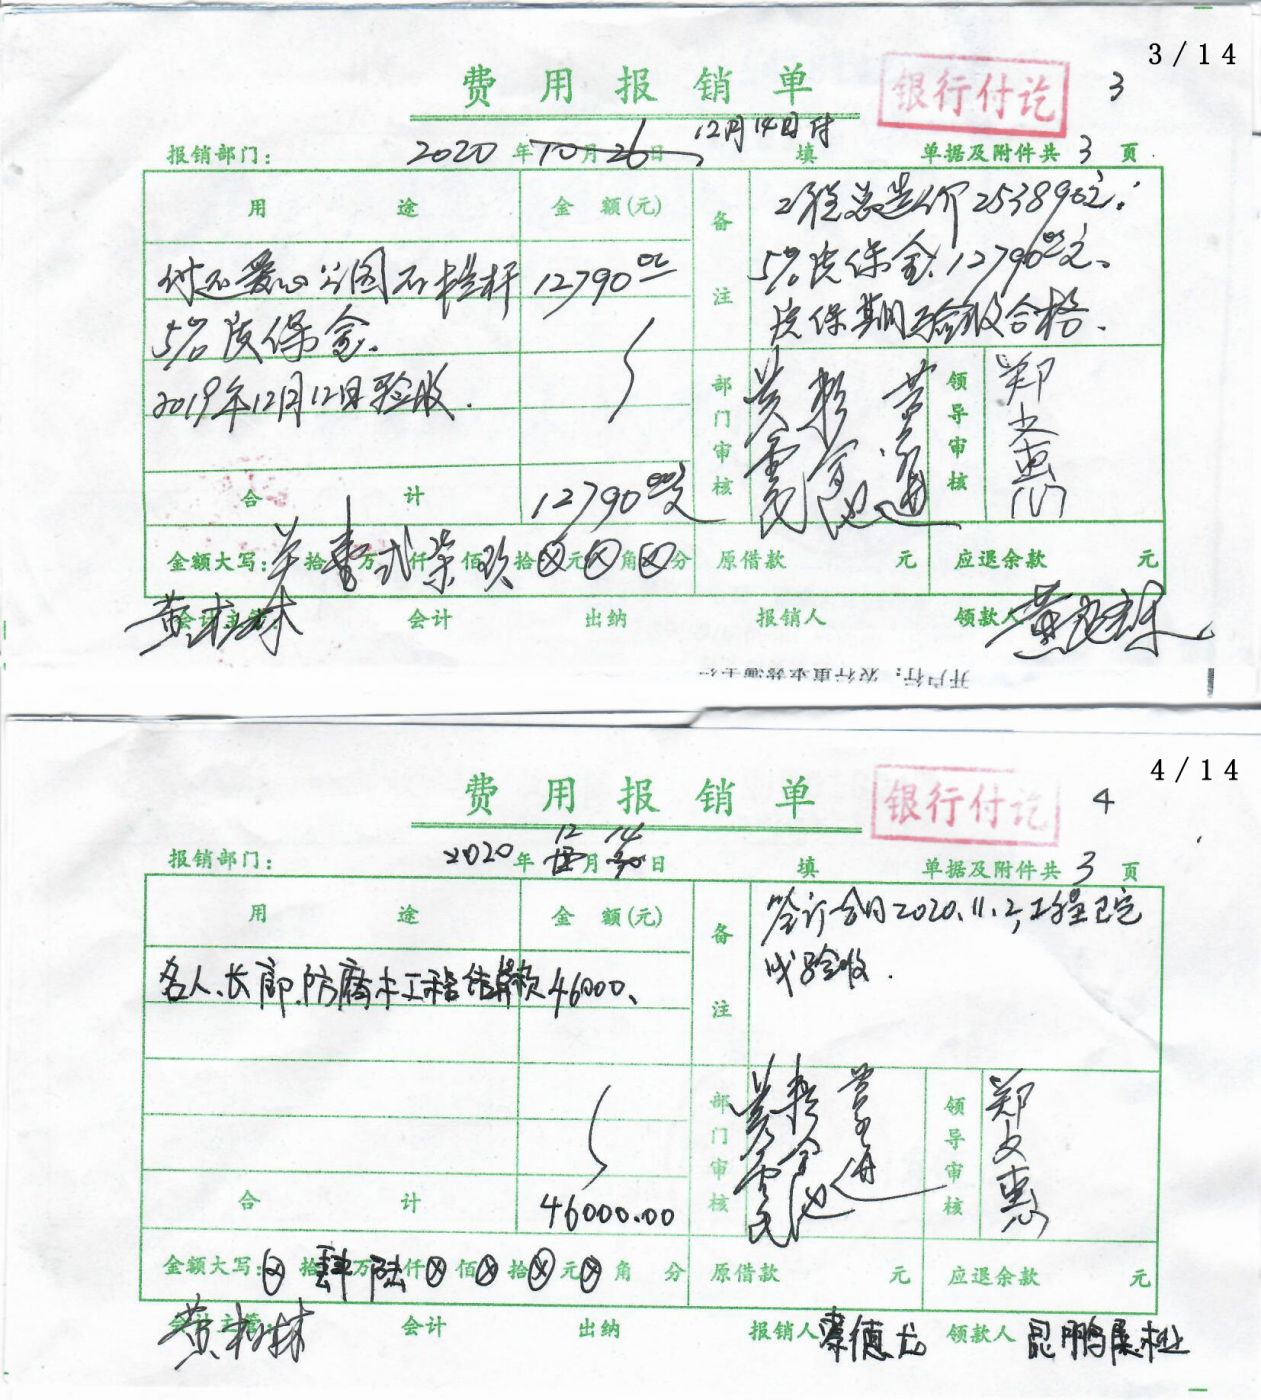 3/14
费用报销单
银行付讫
3
12月14日付
报销部门: 2020年10月26日 填 单据及附件共3页
用途 金额(元) 备注
工程总造价253890元:
5%质保金12790.00元、
质保期已验收合格.
付 爱心公园石栏杆 12790.00
5%质保金.
2019年12月12日验收.
部门审核
领导审核 郑文惠
合计 12790.00元
金额大写: 拾壹万贰仟柒佰玖拾⊗元⊗角⊗分 原借款 元 应退余款 元
会计主管: 会计 出纳 报销人 领款人
开户行: 农行
4/14
费用报销单
银行付讫
4
12 14
报销部门: 2020年 月30日 填 单据及附件共3页
用途 金额(元) 备注
签订合同2020.11.2,工程已完
成验收.
名人、长廊、防腐木工程结算款 46000、
部门审核
领导审核 郑文惠
合计 46000.00
金额大写:⊗拾肆万陆仟⊗佰⊗拾⊗元⊗角 分 原借款 元 应退余款 元
会计主管: 会计 出纳 报销人 德 领款人 鹏